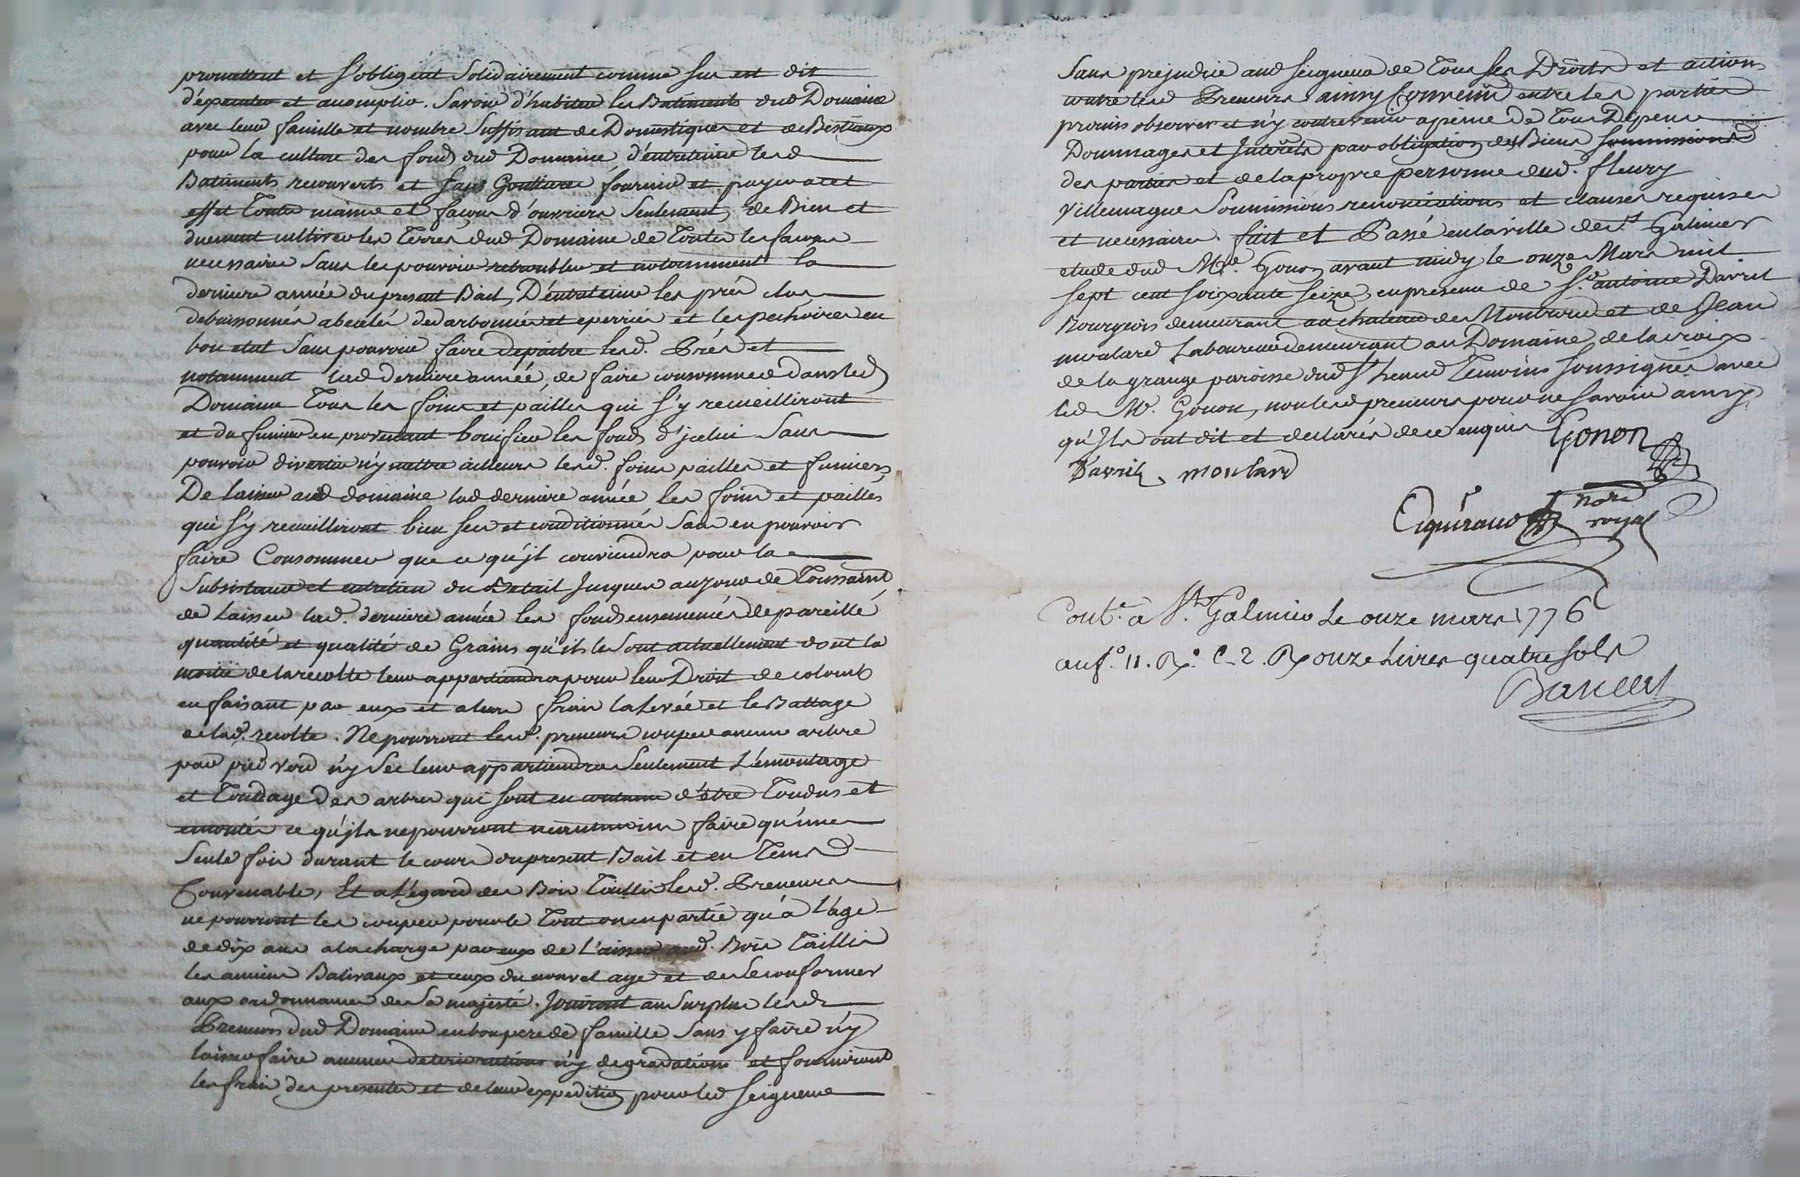 promettent et s'obligent solidairement comme sus est dit
d'executer et accomplir. Savoir d'habiter les Batiments dud Domaine
avec leur famille et nombre suffisant de Domestiques et de Bestiaux
pour la culture des fonds dud Domaine d'entretenir lesd
Batiments recouverts et sans Goutiere fournir et payer a cet
effet toute maine et façons d'ouvriers seulement, de Bien et
duement cultiver les Terres dud Domaine de Toutes les façons
necessaires sans les pouvoir retroubler et notamment la
derniere année du present Bail, D'entretenir les prés clos
debuissonnés abealés et les pechoires en
bon etat sans pouvoir faire depaitre lesd. Prés et
notamment lad derniere année, de faire consommer dans led
Domaine Tous les foins et pailles qui s'y recueilliront
et du fumier en provenant bonifier les fonds d'jcelui sans
pouvoir divertir n'y mettre ailleurs lesd. foins pailles et fumiers
De laisser aud domaine lad derniere année les foins et pailles
qui s'y recueilliront bien sec et conditionnés sans en pouvoir
faire Consommer que ce qu'jl conviendra pour la
Subsistance et entretien du Betail jusques au jour de Toussaint
de Laisser lad. derniere année les fonds ensemencés de pareille
quantité et qualité de Grains qu'ils le sont actuellement dont la
moitié de la recolte leur appartiendra pour leur Droit de colonb
en faisant par eux et a leurs frais la levée et le Battage
de lad. recolte. Ne pourront lesd. preneurs couper aucun arbre
par pied verd n'y sec leur appartiendra seulement L'emontage
et Tondage des arbres qui sont en coutume d'être Tondus et
emontés ce qu'jls ne pourront neantmoins faire qu'une
seule fois durant le cours du present Bail et en Tems
Convenable, Et a l'égard des Bois Taillis lesd. Preneurs
ne pourront les couper pour le Tout ou en partie qu'a l'age
de dix ans a la charge par eux de Laisser aud. Bois Taillis
les anciens Balivaux et ceux du nouvel age et de se conformer
aux ordonnances de Sa majesté. Jouiront au surplus lesd
Preneurs dud Domaine en bon pere de famille sans y faire n'y
laisser faire aucunes deteriorations n'y degradations et fourniront
les frais des presentes et de leur expedition pour led Seigneur
Sans prejudice aud seigneur de Tous ses Droits et actions
contre lesd Preneurs ainsy Convenu entre les parties
promis observer et n'y contrevenir a peine de Tous Depens
Dommages et Interêts par obligation des Biens
des parties et de la propre personne dud. fleury
Villemagne Soumissions renonciations et clauses requises
et necessaires. fait et Passé en la ville de St Galmier
etude dud Me. Gonon avant midy le onze Mars mil
sept cent soixante seize, en presence de Sr. antoine Davril
Bourgeois demeurant au chateau de et de Jean
moulard Laboureur demeurant au Domaine de la croix
de la grange paroisse dud St heand Temoins soussignés avec
led Me. Gonon, non lesd preneurs pour ne savoir ainsy
qu'jls ont dit et declarés de ce enquis Gonon
Davril, moulard
nore
royal
Contle. a St. Galmier Le onze mars 1776
au f.o 11. Ro. C. 2. Rx onze Livres quatre sols